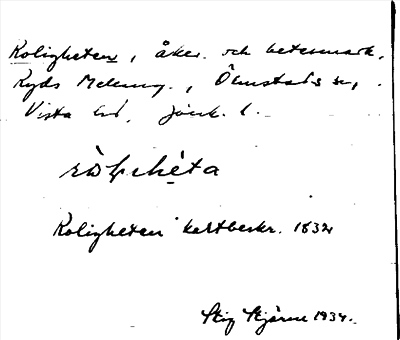 Koligheten, åker och betesmark,
Ryds Mellang., Ölmstads sn,
Vista hd, Jönk. l.
Koligheten kartbeskr. 1832
Stig Stjärne 1934.